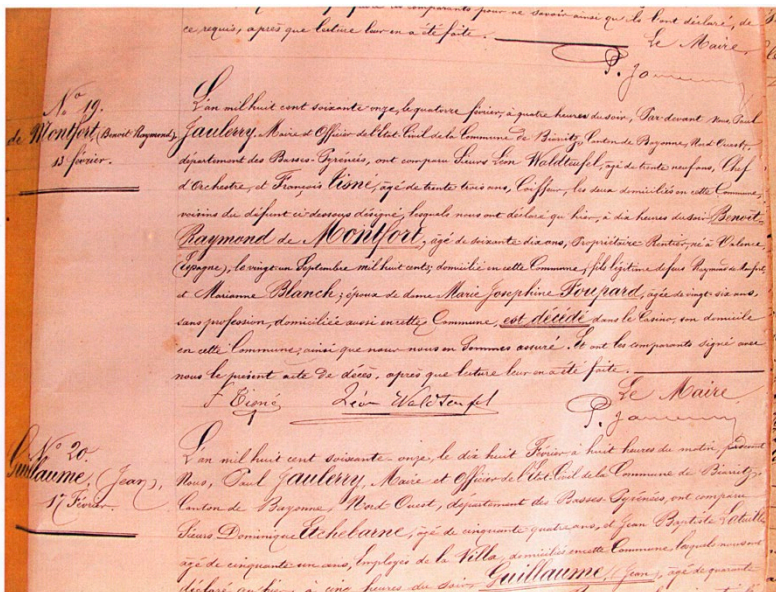 ce requis, après que lecture leur en a été faite.
Le Maire,
P. Jau
No 19.
de Montfort (Benoit Raymond)
13 février.
L'an mil huit cent soixante onze, le quatorze février, à quatre heures du soir, Par devant Nous, Paul
Jaulerry, Maire et Officier de l'Etat Civil de la Commune de Biarritz, Canton de Bayonne, Nord Ouest,
département des Basses-Pyrénées, ont comparu Sieurs Léon Waldteufel, âgé de trente neuf ans, Chef
d'Orchestre, et François Tisné, âgé de trente trois ans, Coiffeur, les deux domiciliés en cette Commune,
voisins du défunt ci-dessous désigné, lesquels nous ont déclaré qu'hier, à dix heures du soir Benoit-
Raymond de Montfort, âgé de soixante dix ans, Propriétaire Rentier, né à Valence
(Espagne), le vingt un Septembre mil huit cents, domicilié en cette Commune, fils légitime de feus Raymond de Montfort,
et Marianne Blanch; époux de dame Marie Josephine Foupard, âgée de vingt six ans,
sans profession, domiciliée aussi en cette Commune, est décédé dans le Casino, son domicile
en cette Commune, ainsi que nous nous en sommes assuré. Et ont les comparants signé avec
nous le présent acte de décès, après que lecture leur en a été faite.
F Tisné Léon Waldteufel
Le Maire
P. Jau
No 20
Guillaume, (Jean),
17 Février.
L'an mil huit cent soixante-onze, le dix huit Février à huit heures du matin, par devant
Nous, Paul Jaulerry, Maire et Officier de l'Etat Civil de la Commune de Biarritz,
Canton de Bayonne, Nord Ouest, département des Basses-Pyrénées, ont comparu
Sieurs Dominique Etchebarne, âgé de cinquante quatre ans, et Jean Baptiste
âgé de cinquante un ans, Employés de la Villa, domiciliés en cette Commune, lesquels nous ont
déclaré qu'hier à cinq heures du soir Guillaume, (Jean), âgé de quarante